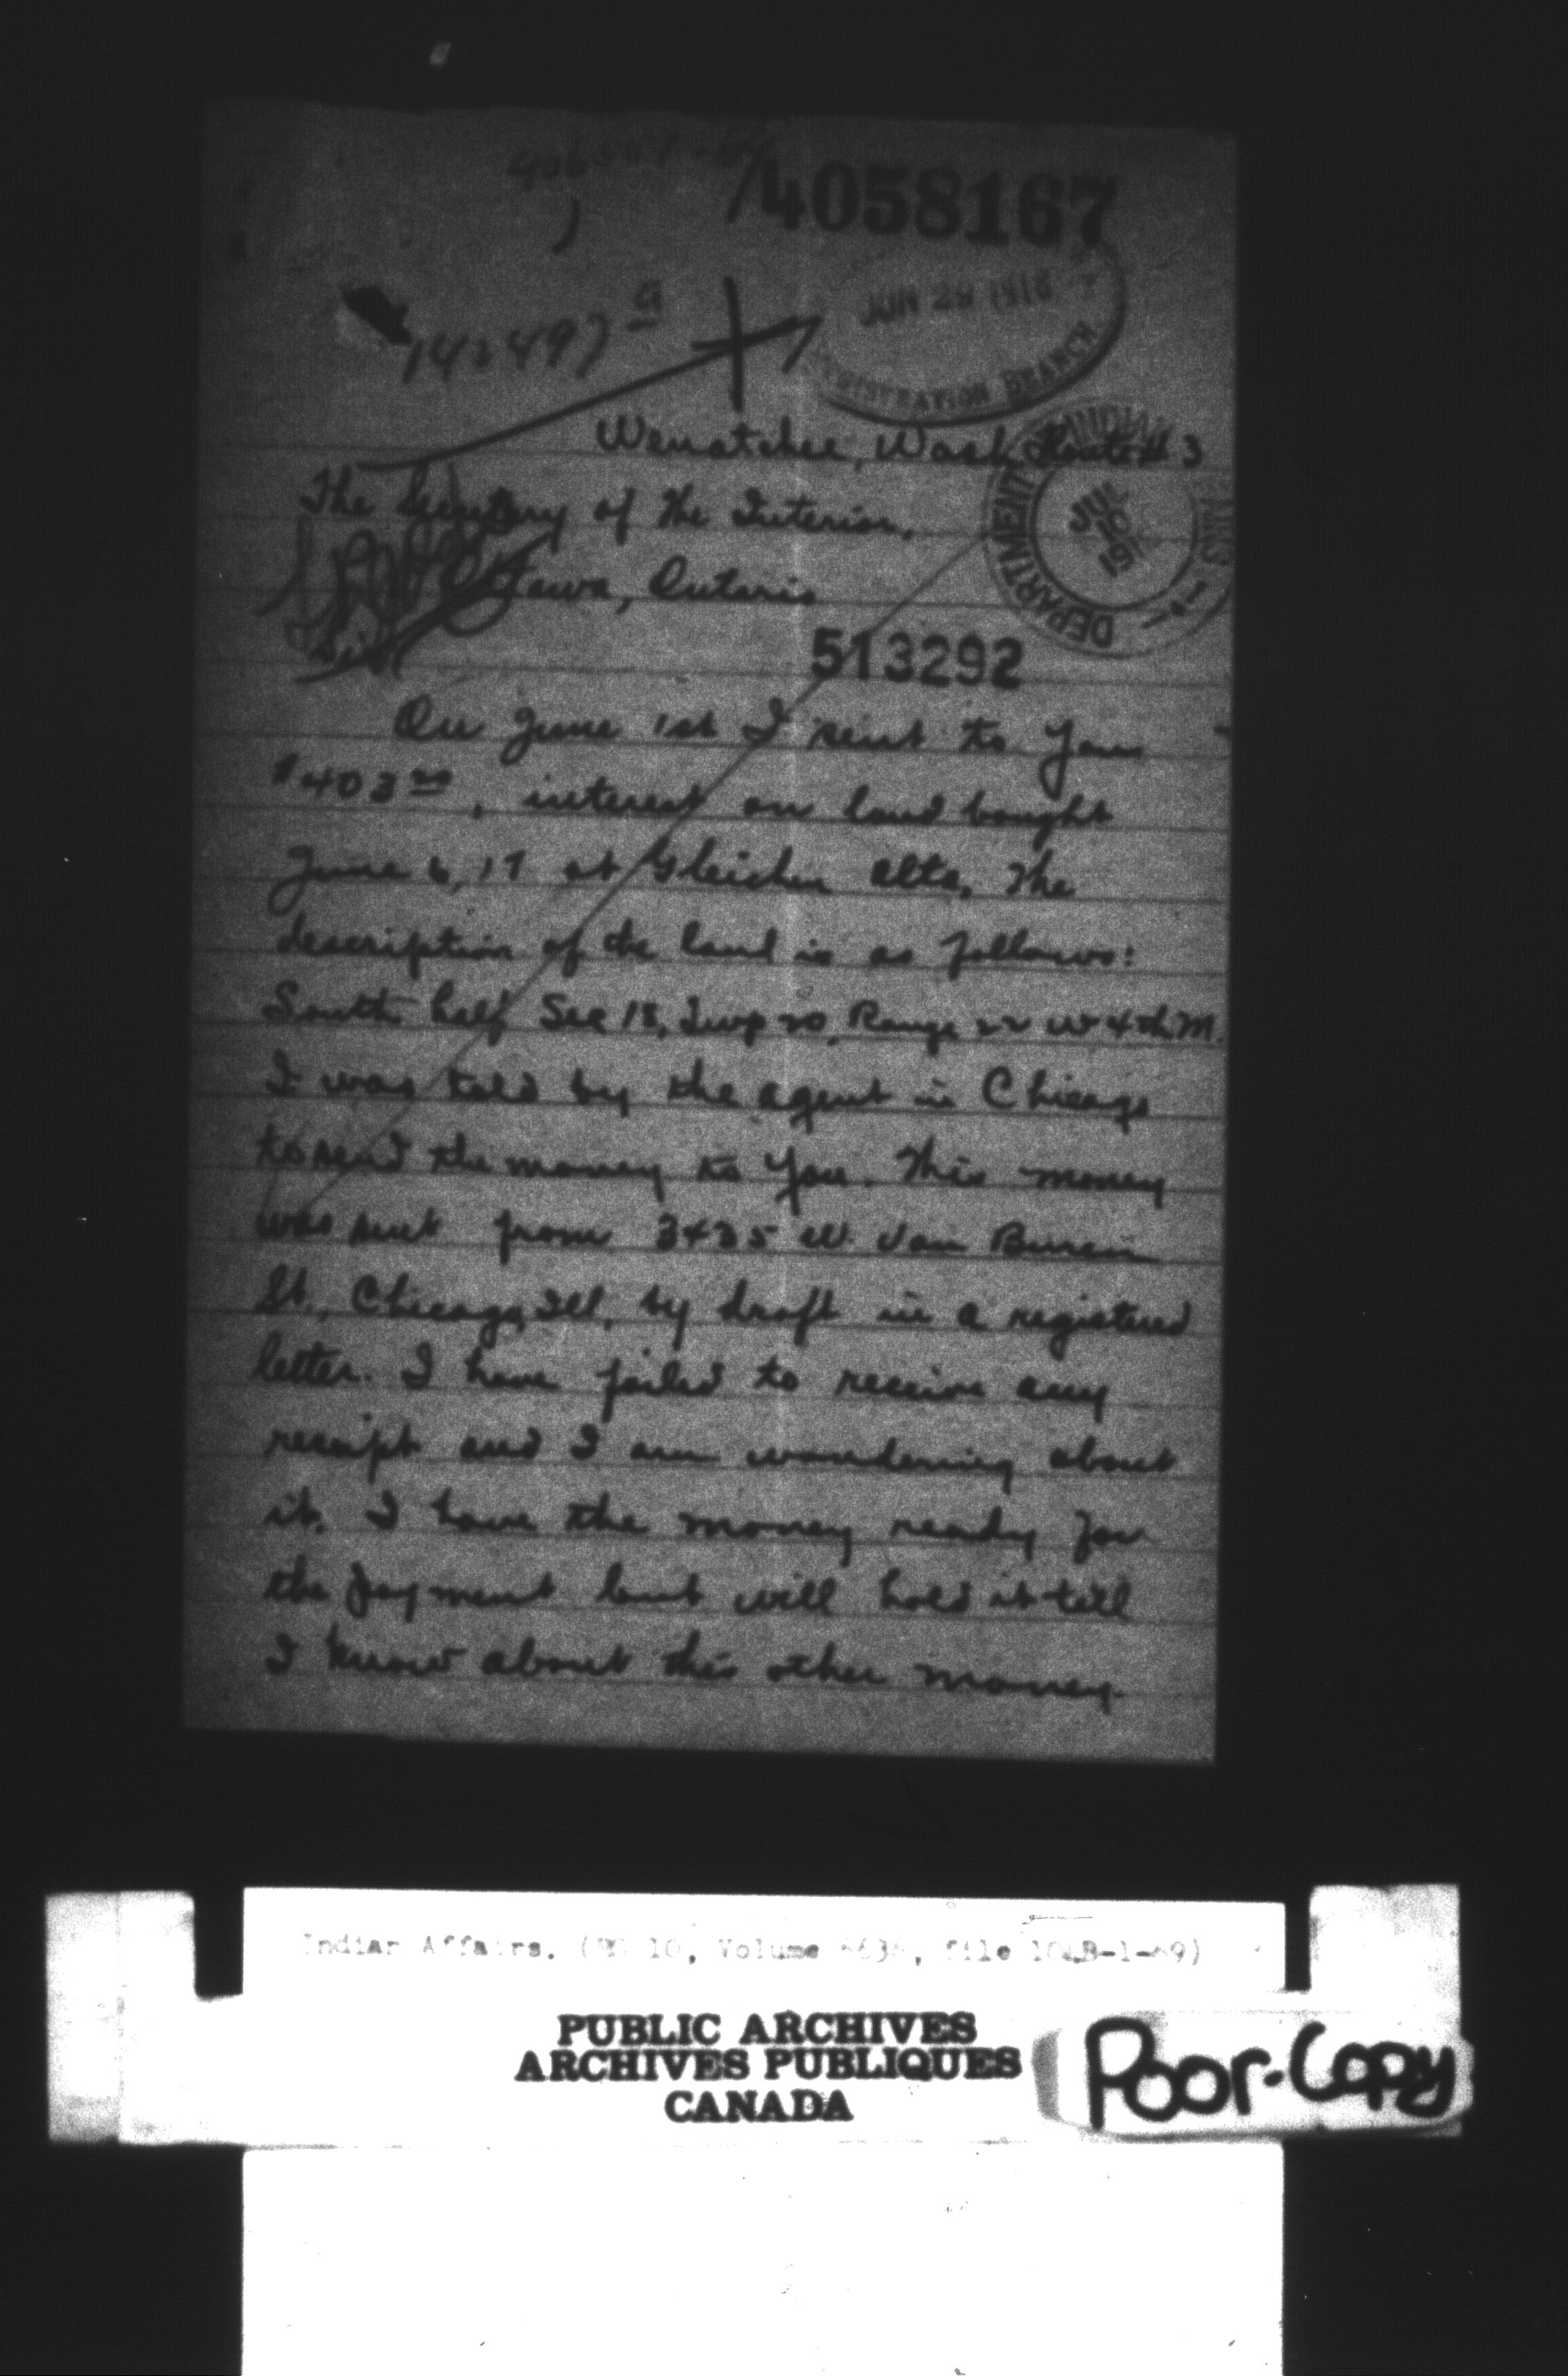 4058167
JUN 29 1918
REGISTRATION BRANCH
142497 a
Wenatchee, Wash. Route # 3
DEPARTMENT INDIAN
JUL 10 191
The Secretary of the Interior,
Ottawa, Ontario
513292
Sir:
On June 1st I sent to you
$403 20, interest on land bought
June 6, 17 at Gleichen Alta. The
description of the land is as follows:
South half Sec 18, Twp 20, Range 22 W 4th M.
I was told by the agent in Chicago
to send the money to you. This money
was sent from 3435 W. Van Buren
St., Chicago, Ill. by draft in a registered
letter. I have failed to receive any
receipt and I am wondering about
it. I have the money ready for
the payment but will hold it till
I know about this other money.
Indian Affairs. (RG 10, Volume file
PUBLIC ARCHIVES
ARCHIVES PUBLIQUES
CANADA
Poor-Copy